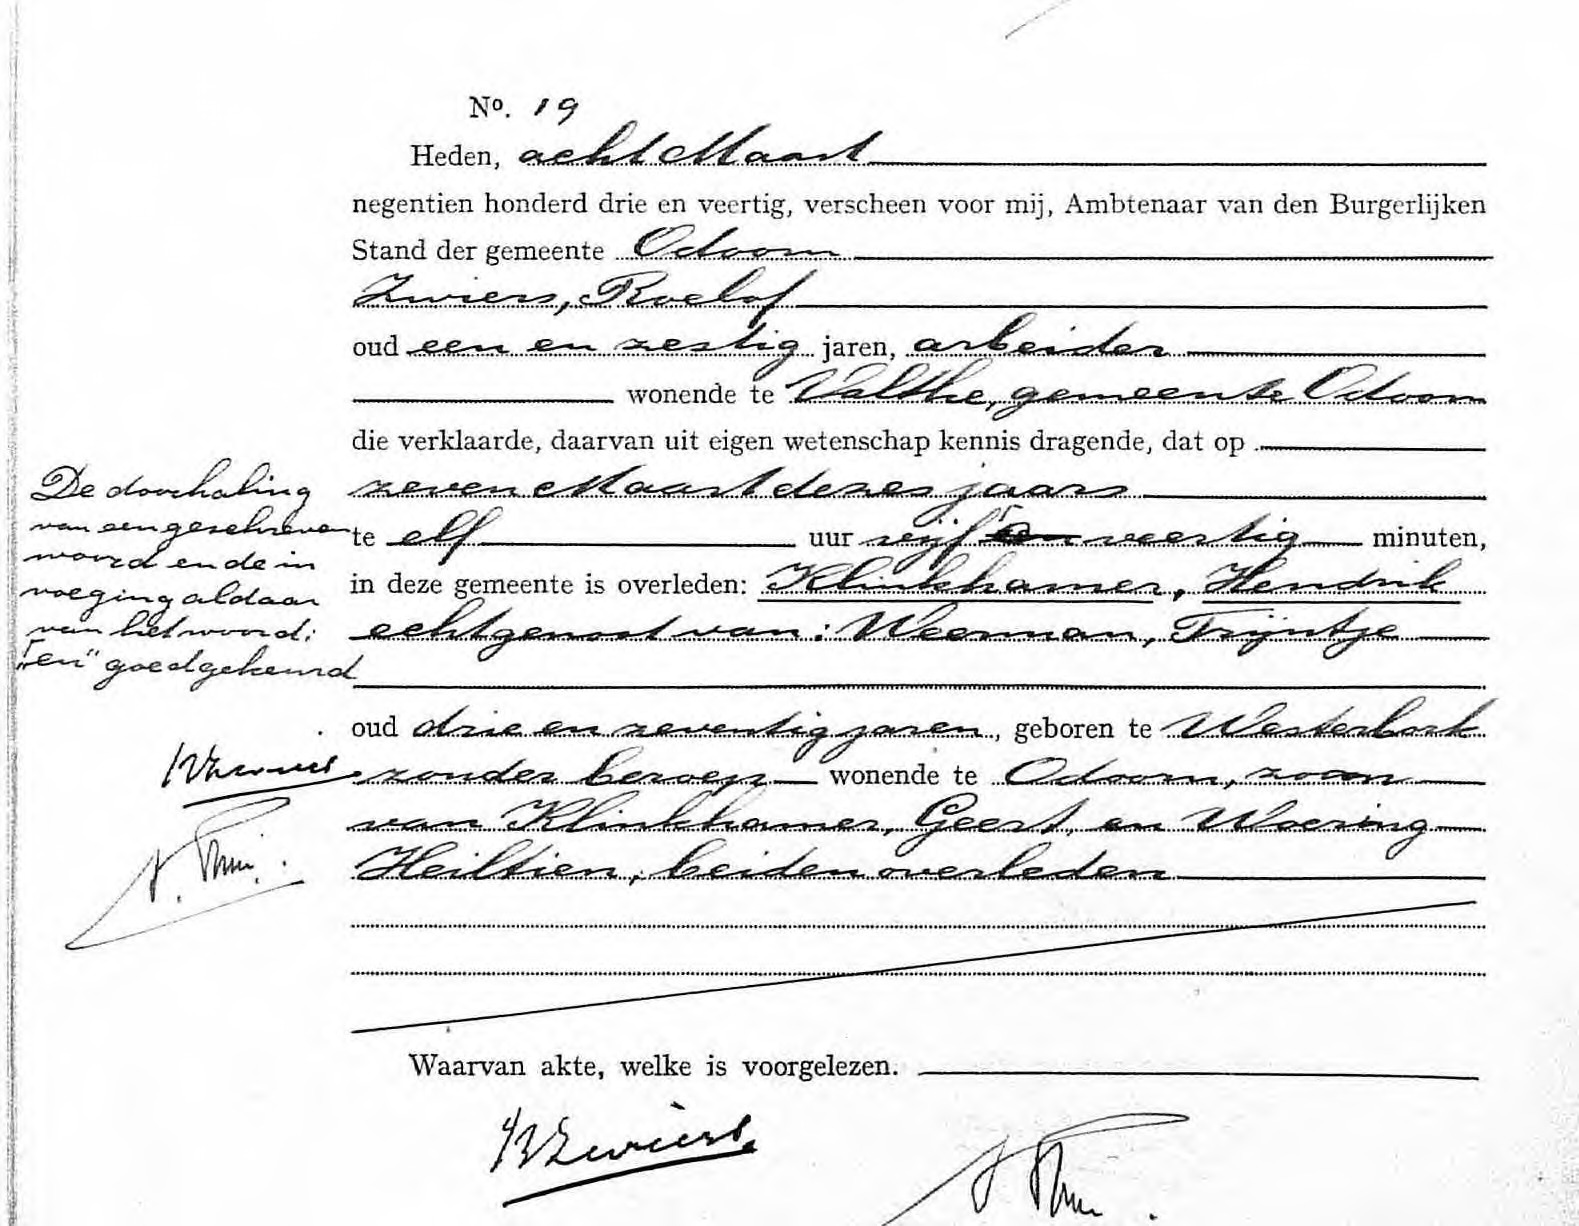 No. 19
Heden, acht Maart
negentien honderd drie en veertig, verscheen voor mij, Ambtenaar van den Burgerlijken
Stand der gemeente Odoorn
Zwiers, Roelof
oud een en zestig jaren, arbeider
wonende te Valthe, gemeente Odoorn
die verklaarde, daarvan uit eigen wetenschap kennis dragende, dat op
zeven Maart dezes jaars
te elf uur vijf en veertig minuten,
in deze gemeente is overleden: Klinkhamer, Hendrik
echtgenoot van: Weerman, Trijntje
oud drie en zeventig jaren, geboren te Westerbork
zonder beroep wonende te Odoorn, zoon
van Klinkhamer, Geert, en Woering
Heiltien, beiden overleden
De doorhaling
van een geschreven
woord en de in
voeging aldaar
van het woord:
„en" goedgekeurd
RZwiers
Waarvan akte, welke is voorgelezen.
RZwiers